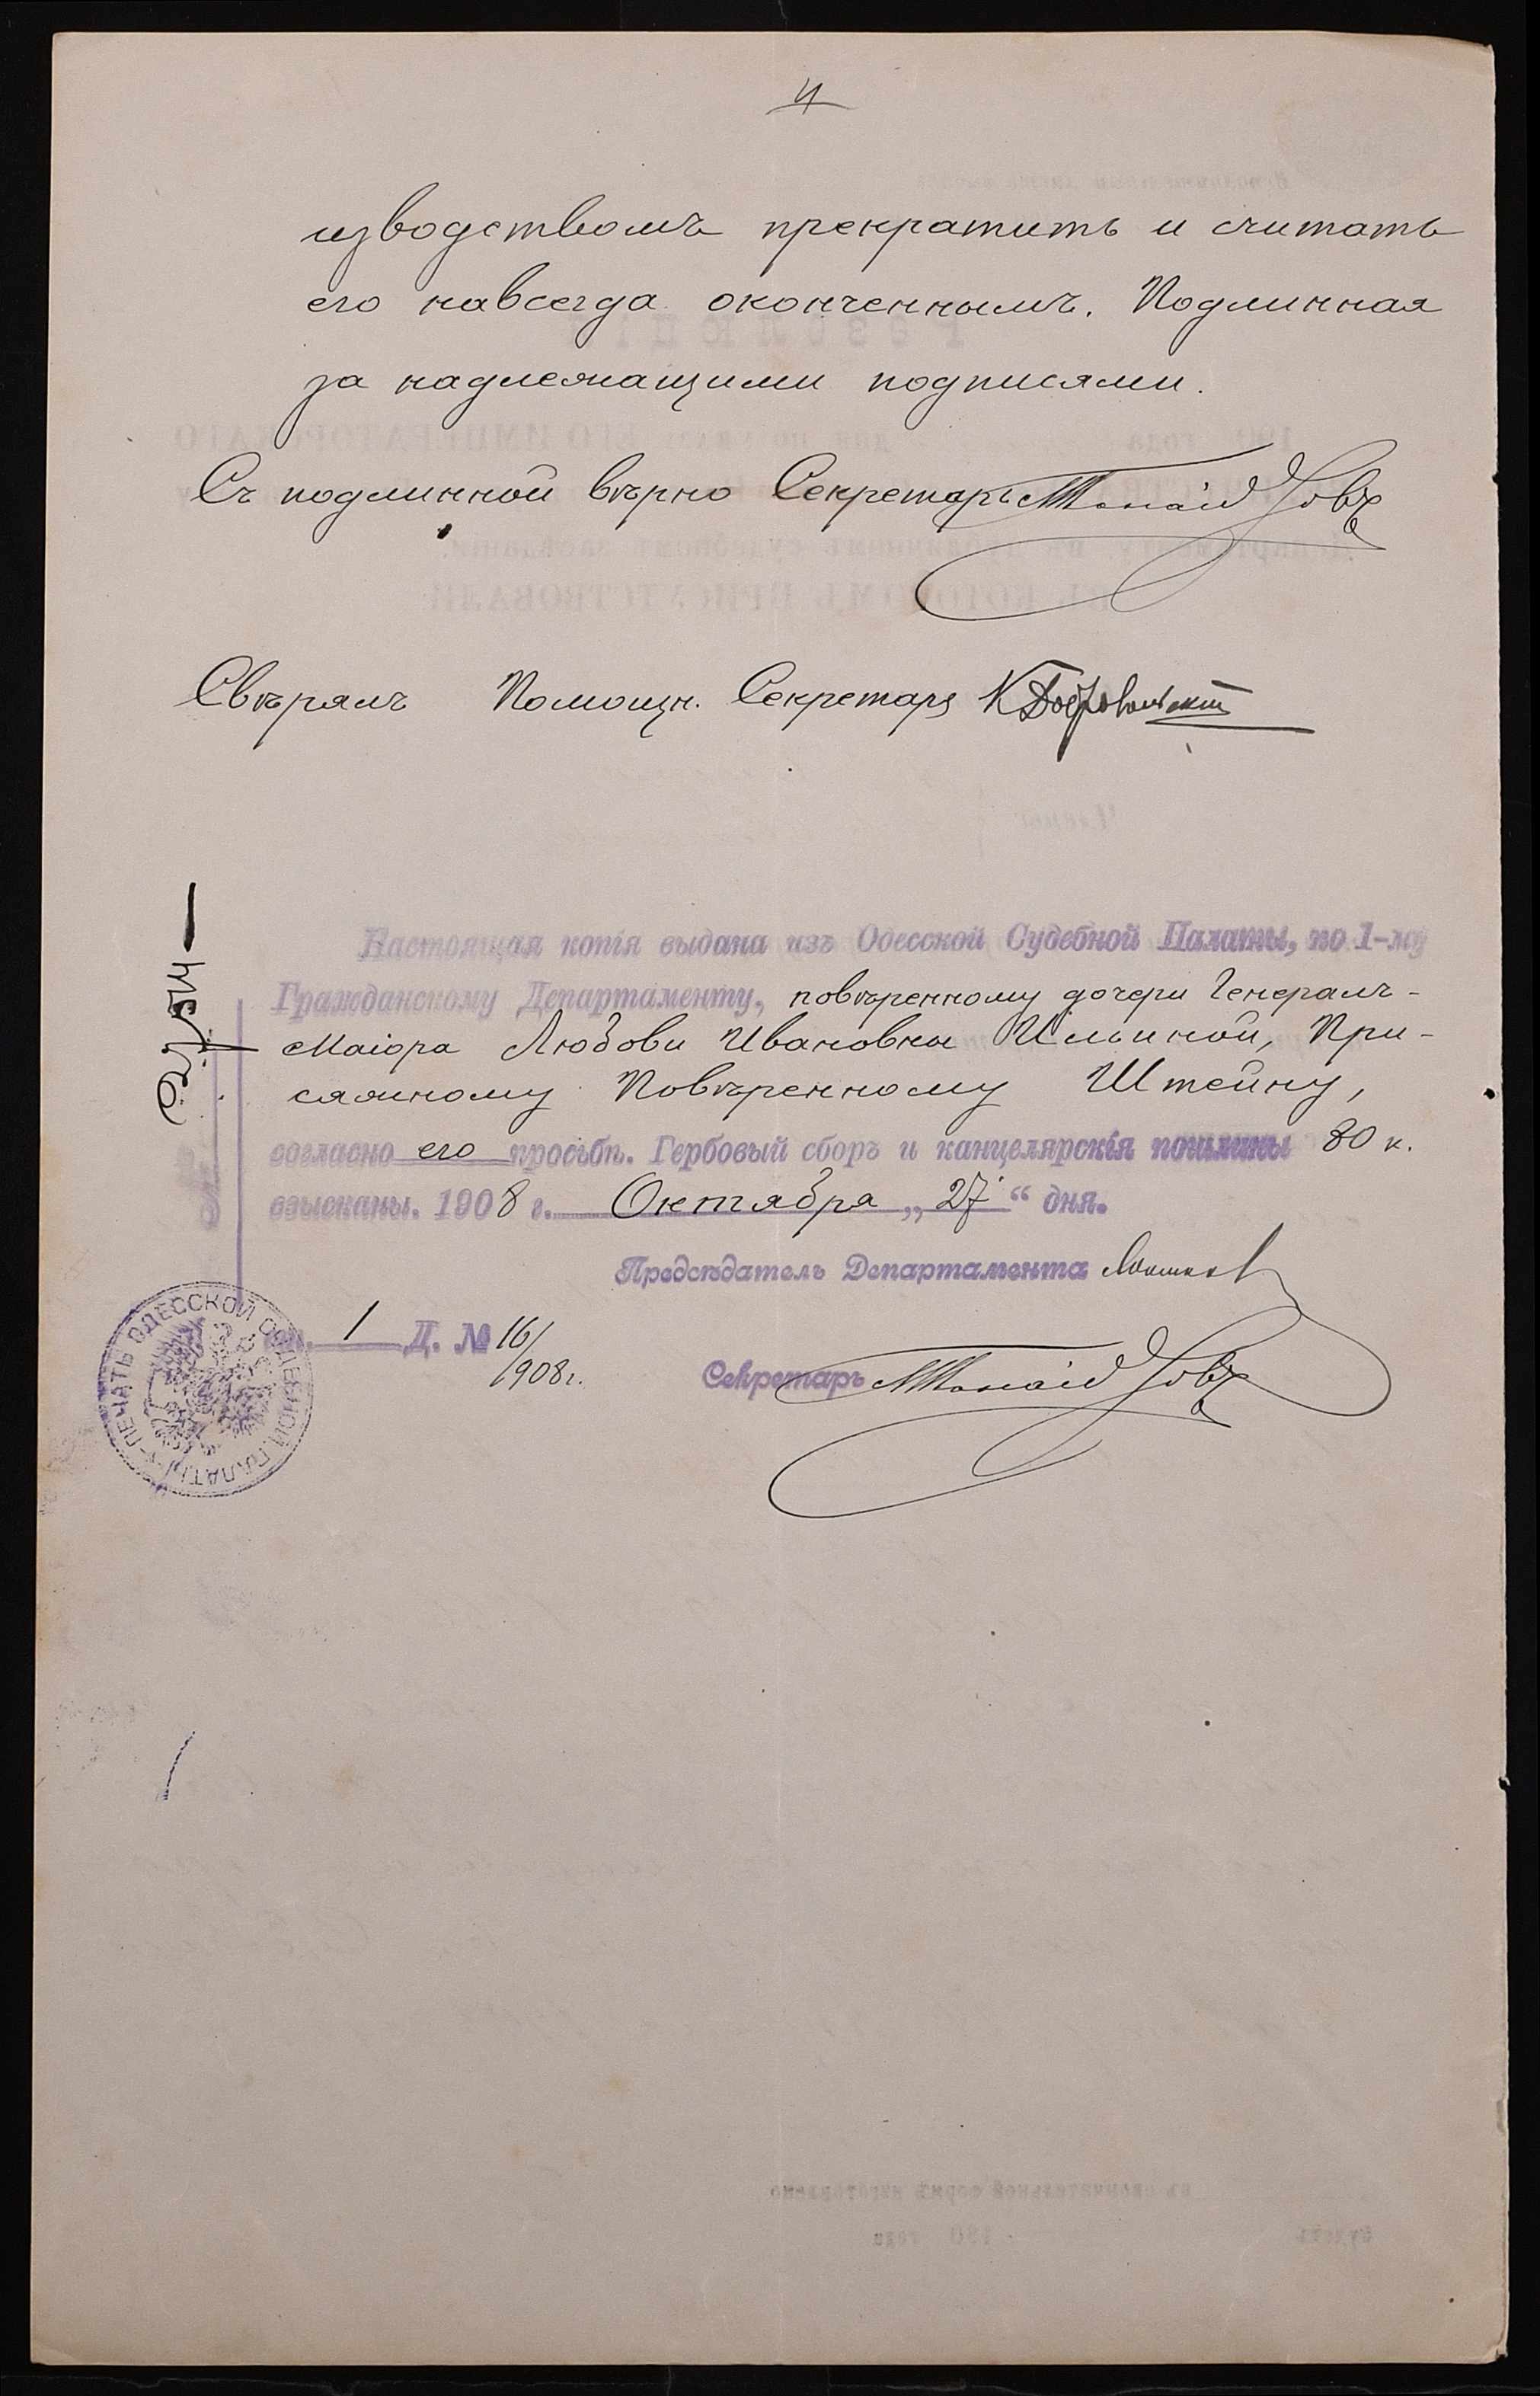 4
изводствомъ прекратить и считать
его навсегда оконченнымъ. Подлинная
за надлежащими подписями.
Съ подлинной вѣрно Секретарь
Свѣрялъ Помощн. Секретаря К Добровольскій
Настоящая копія выдана изъ Одесской Судебной Палаты, по 1-му
Гражданскому Департаменту, повѣренному дочери Генералъ-
Маіора Любови Ивановны Ильиной, При-
сяжному Повѣренному Штейну,
согласно его просьбѣ. Гербовый сборъ и канцелярскія пошлины 80 к.
взысканы. 1908 г. Октября „27“ дня.
Предсѣдатель Департамента
1 Д. № 16/
1908 г.
Секретарь
ПЕЧАТЬ ОДЕССКОЙ СУДЕБНОЙ ПАЛАТЫ